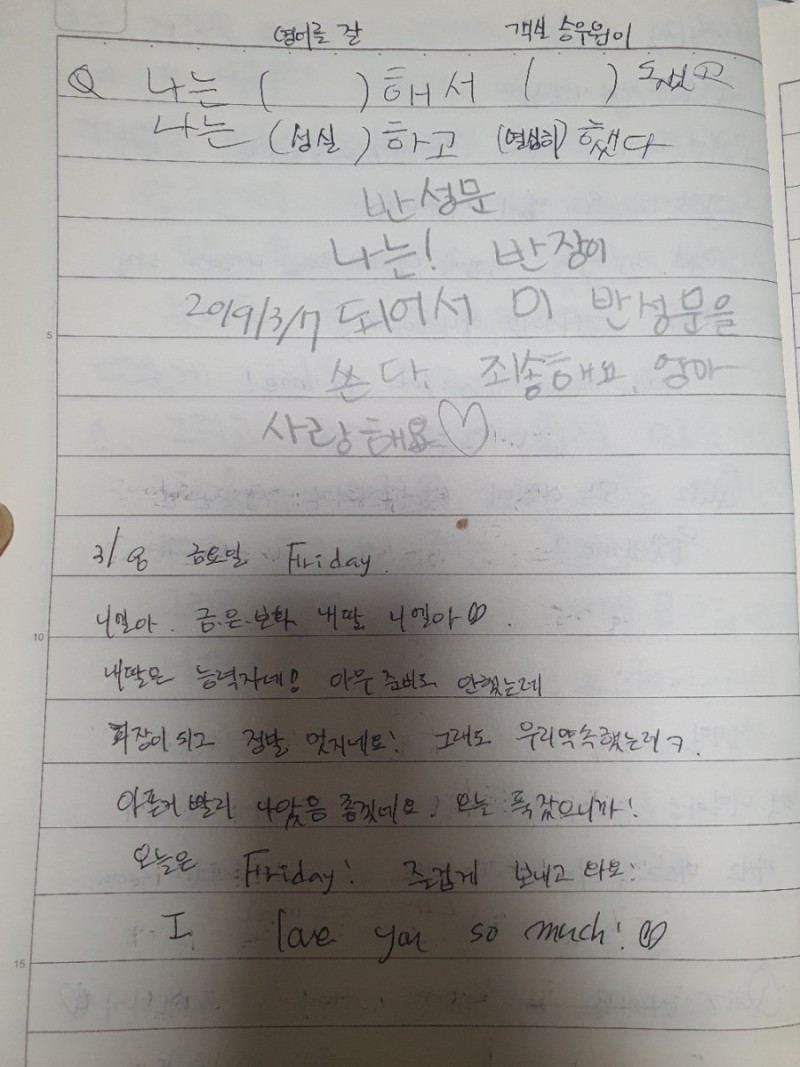 영어를 잘 객실 승무원이
Q 나는 ( ) 해서 ( ) 되었고
나는 (성실) 하고 (열심히) 했다
반성문
나는! 반장이
2019/3/7 되어서 이 반성문을
쓴다. 죄송해요, 엄마
사랑해요♡
3/8 금요일. Friday.
니엘아. 금.은.보화 내딸 니엘아♡.
내딸은 능력자네! 아무 준비도 안했는데
회장이 되고 정말 멋지네요! 그래도 우리약속했는데ㅋ.
아픈거 빨리 나았음 좋겠네요! 오늘 푹잤으니까!
오늘은 Friday! 즐겁게 보내고 와요!
I love you so much! ♡
5
10
15